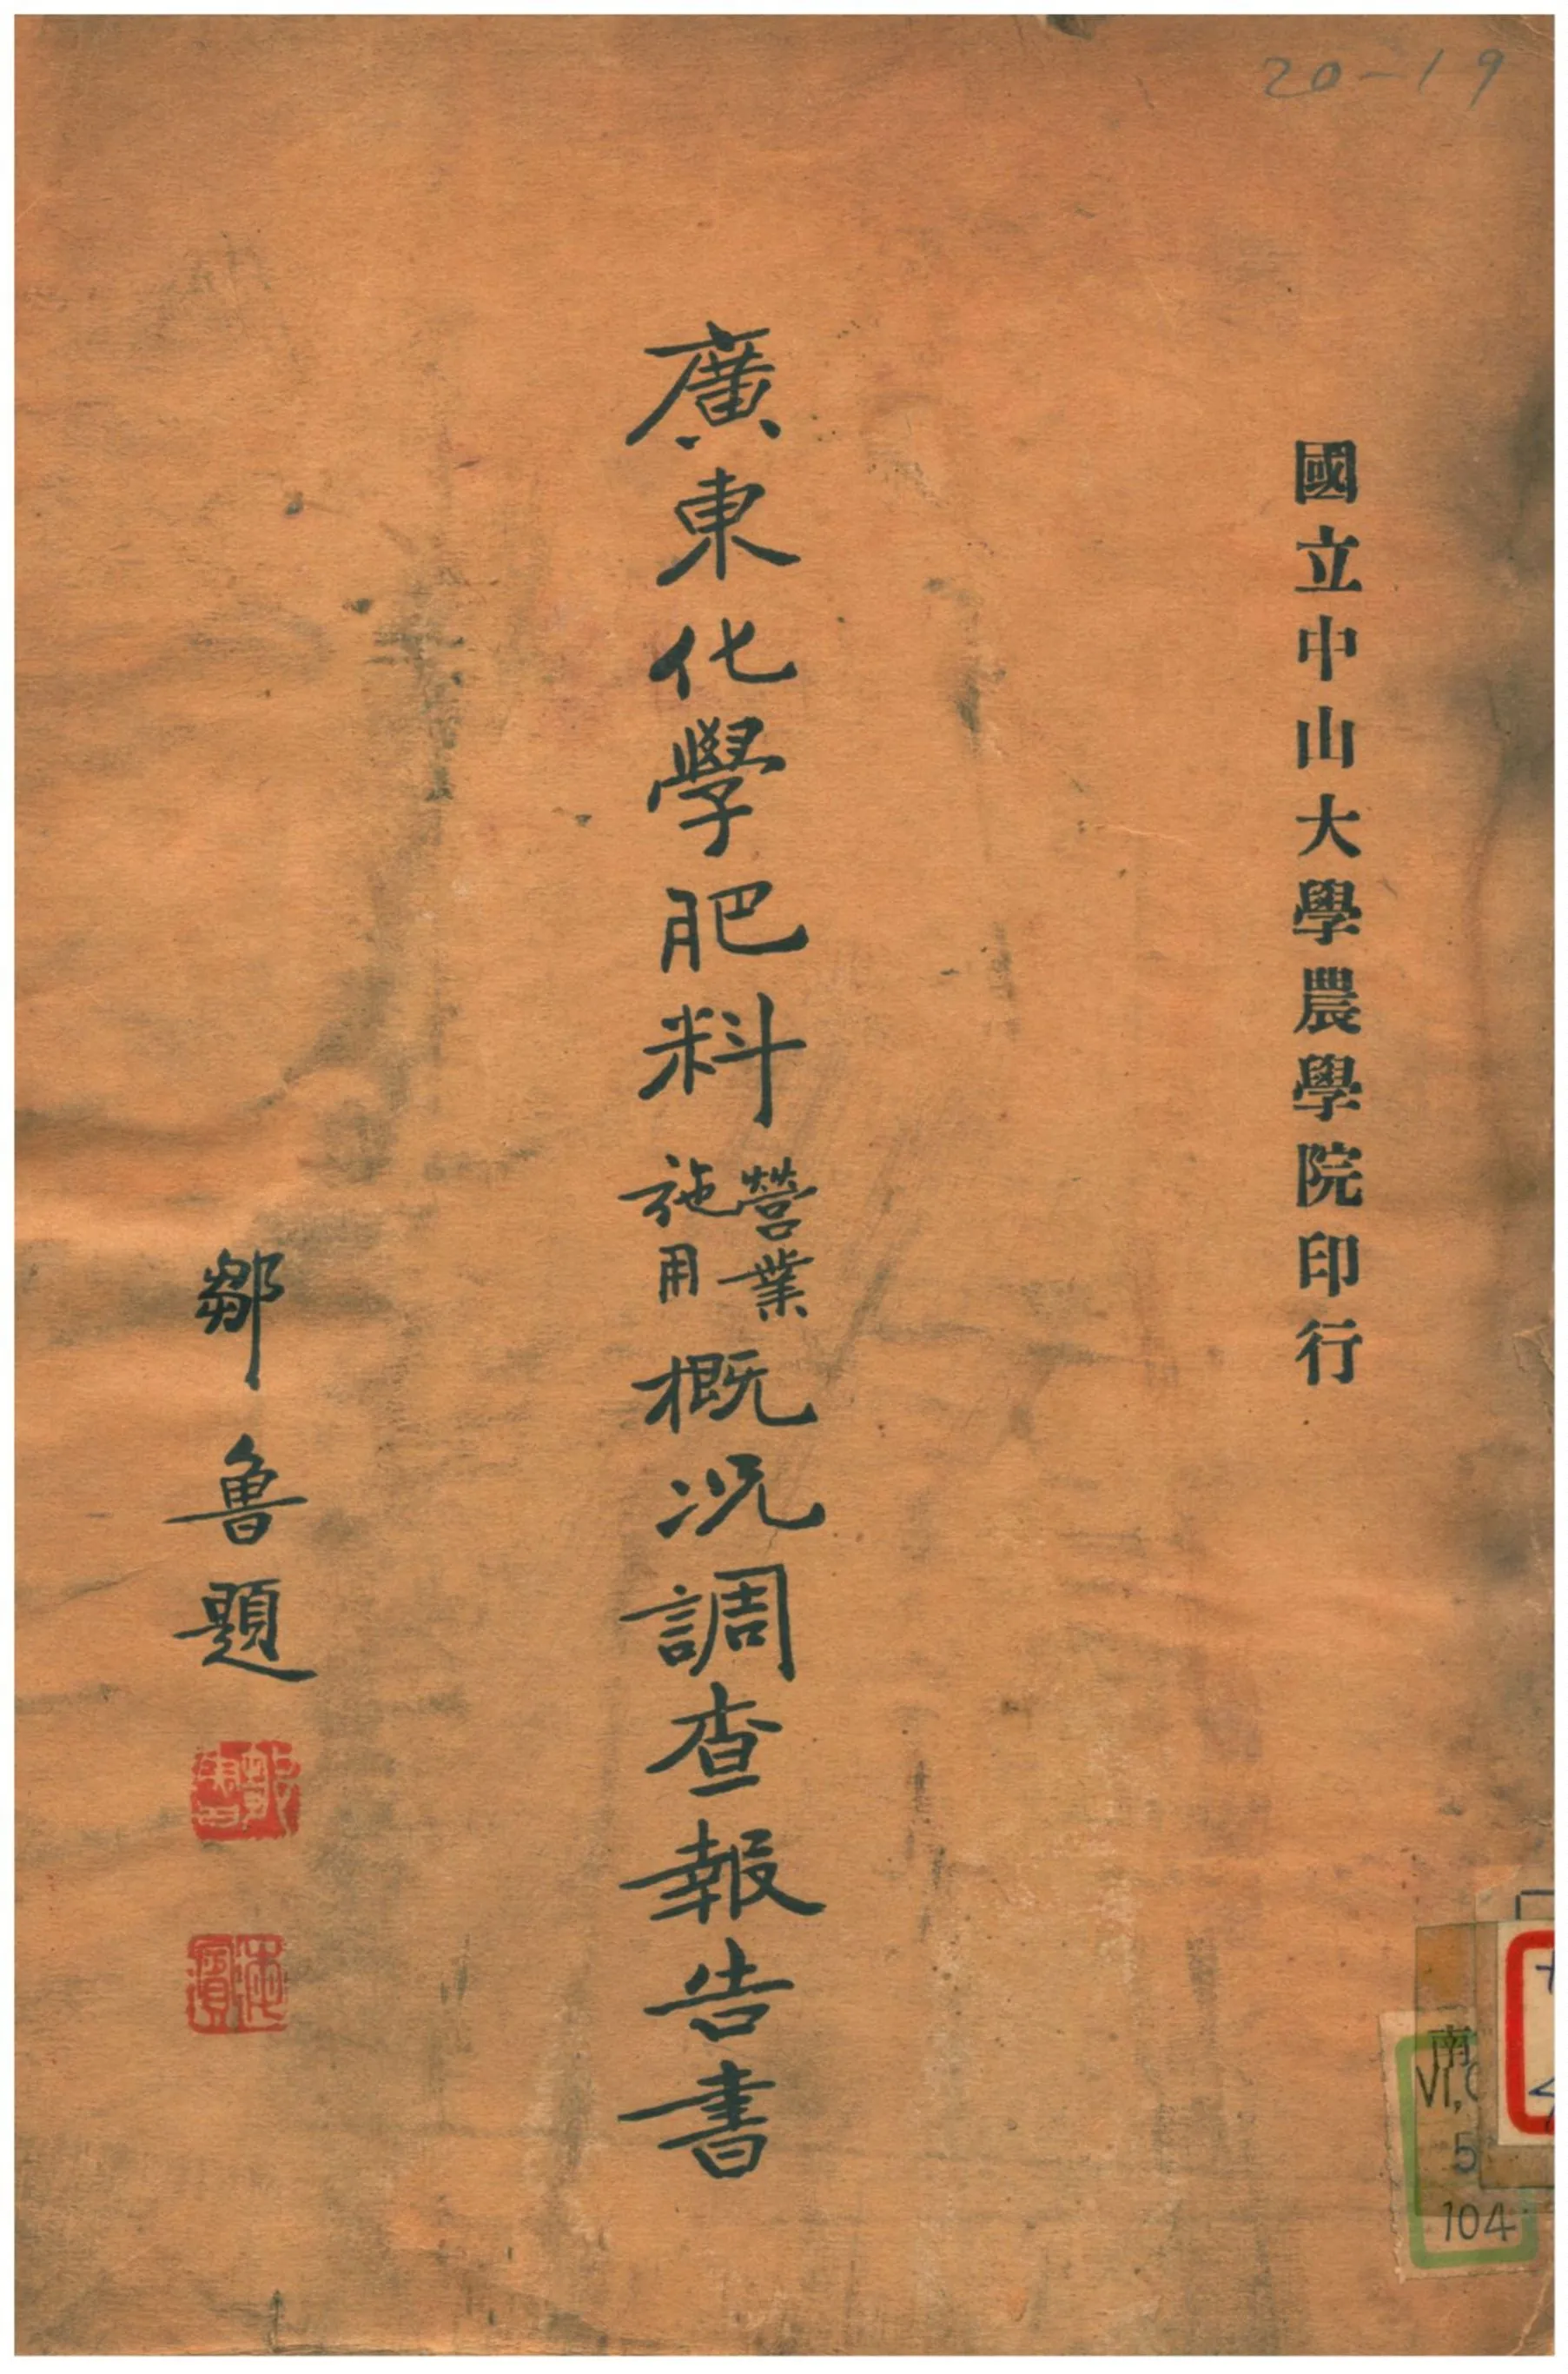 20-19
國立中山大學農學院印行
廣東化學肥料營業施用概况調查報告書
鄒魯題
鄒魯
海濱
南
VI,
5
104